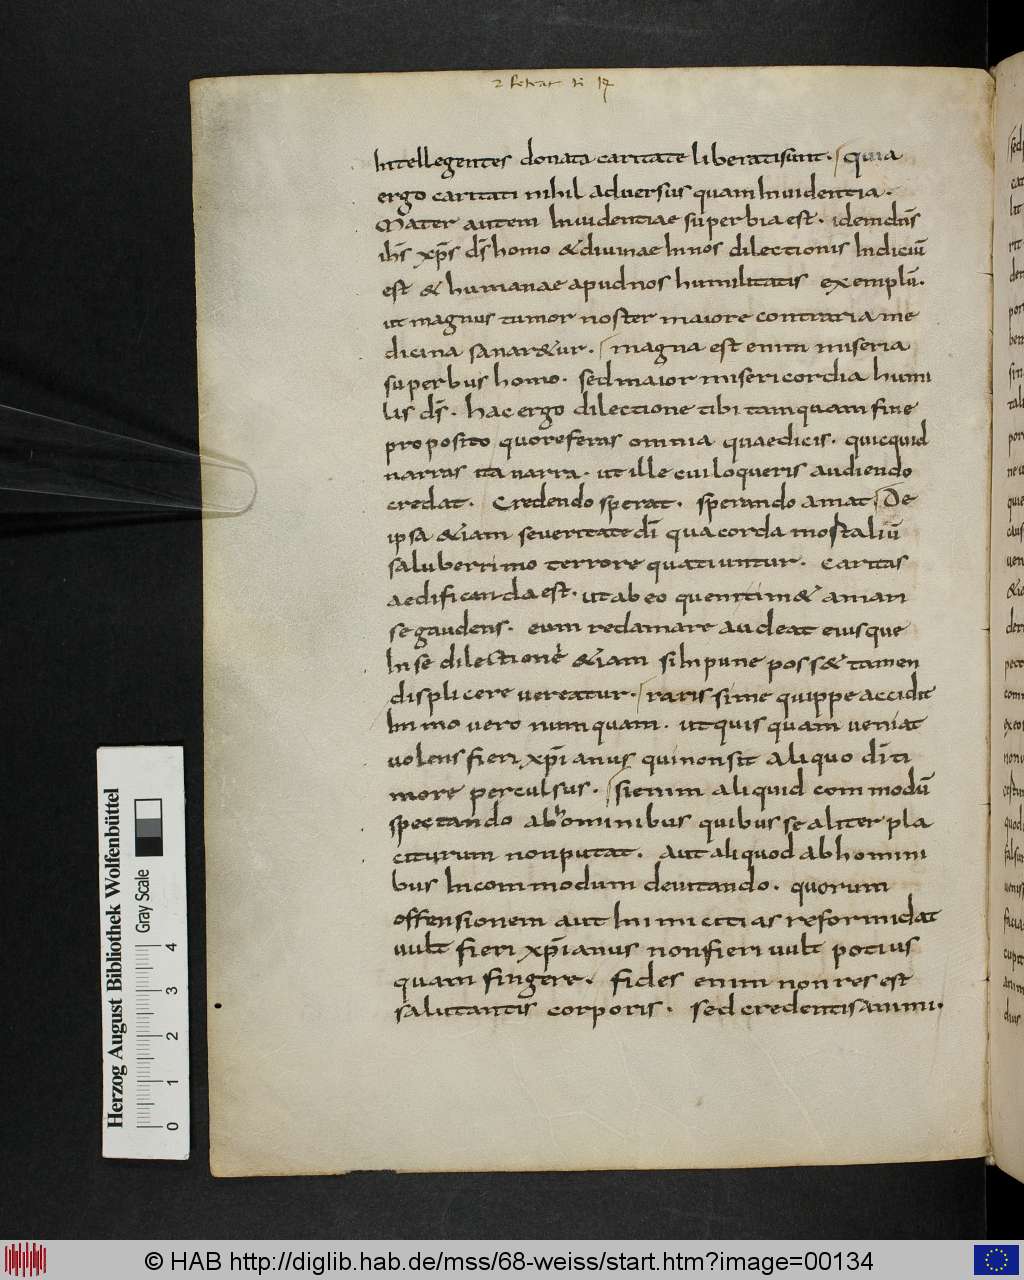 Intellegentes donata caritate liberati sunt. quia
ergo caritati nihil adversus quam Inuidentia.
Mater autem Inuidentiae superbia est. idem dn̄s
ih̄s xp̄s ds̄ homo & diuinae In nos dilectionis Indiciū
est & humanae apud nos humilitatis exemplū.
ut magnus tumor noster maiore contraria me
dicina sanar&ur. magna est enim miseria
superbus homo. sed maior misericordia humi
lis ds̄. hac ergo dilectione tibi tamquam fine
proposito quo referas omnia quae dicis. quicquid
narras ita narra. ut ille cui loqueris audiendo
credat. Credendo sperat. sperando amat. De
ipsa &iam seueritate dī qua corda mortaliū
saluberrimo terrore quatiuntur. Caritas
aedificanda est. ut ab eo quem tim& amari
se gaudens. eum redamare audeat eiusque
In se dilectione &iam si Inpune poss& tamen
displicere uereatur. rarissime quippe accidit
Immo uero numquam. ut quisquam ueniat
uolens fieri xp̄ianus qui non sit aliquo dī ti
more perculsus. si enim aliquid commodū
spectando ab hominibus quibus se aliter pla
citurum non putat. Aut aliquod ab homini
bus Incommodum deuitando. quorum
offensionem aut Inimicitias reformidat
uult fieri xp̄ianus non fieri uult potius
quam fingere. fides enim non res est
salutantis corporis. sed credentis animi.
Herzog August Bibliothek Wolfenbüttel
Gray Scale
0 1 2 3 4
© HAB http://diglib.hab.de/mss/68-weiss/start.htm?image=00134